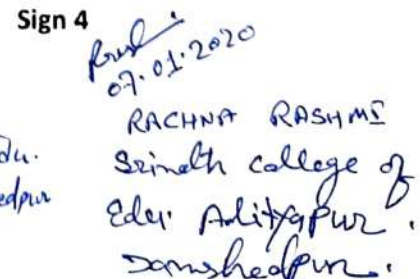 Sign 4
07.01.2020
RACHNA RASHMI
Edu.
Srinath college of
Edu. Adityapur.
Jamshedpur.